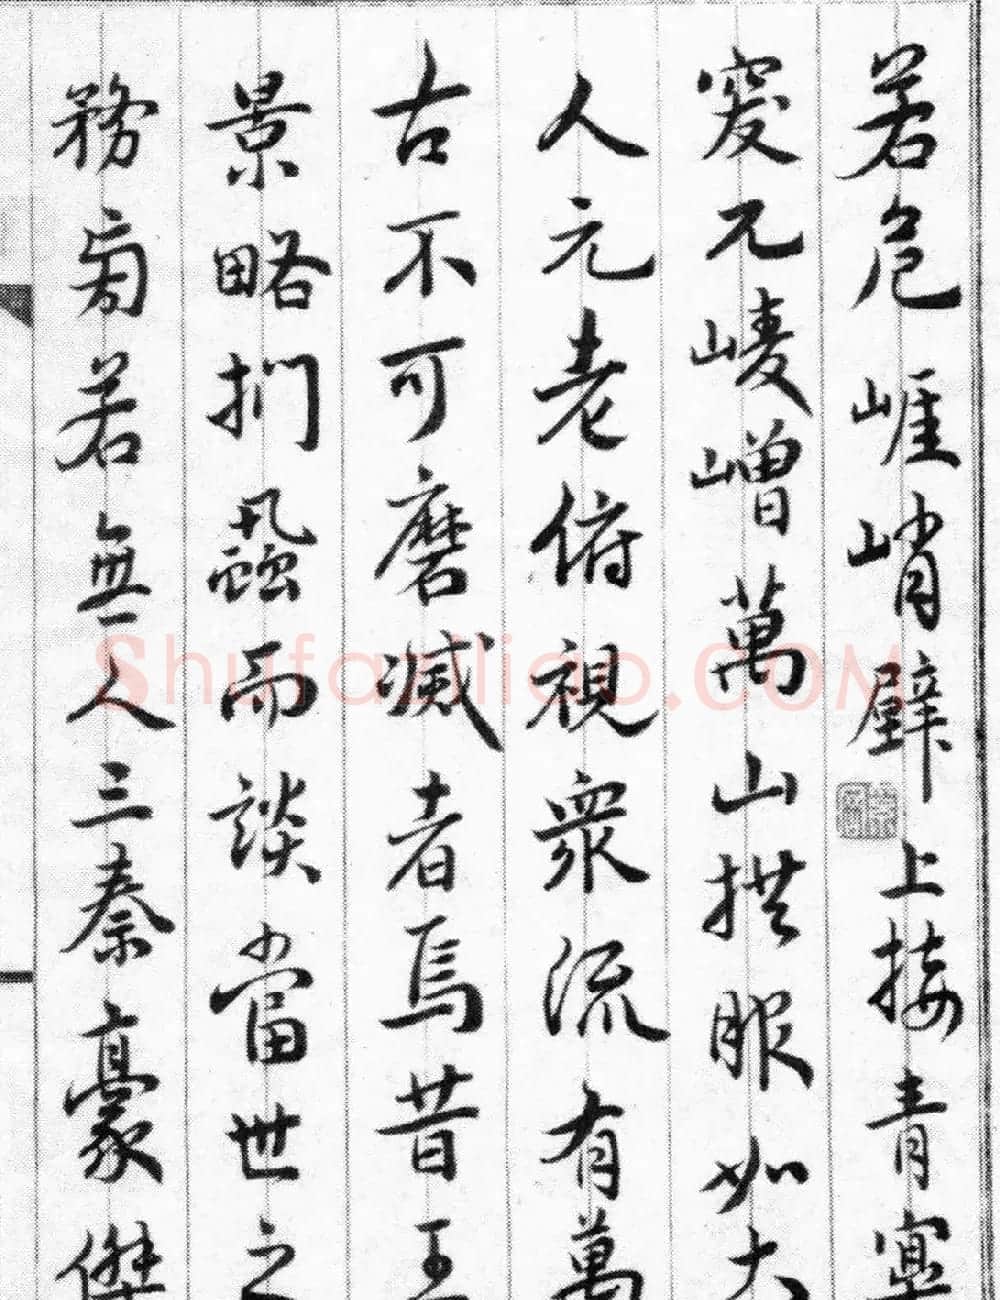 若危崖峭壁上接青寥
窔兀崚嶒萬山拱服如大
人元老俯視衆流有萬
古不可磨滅者焉昔王
景略捫蝨而談當世之
務旁若無人三秦豪傑
Shufaziliao.COM